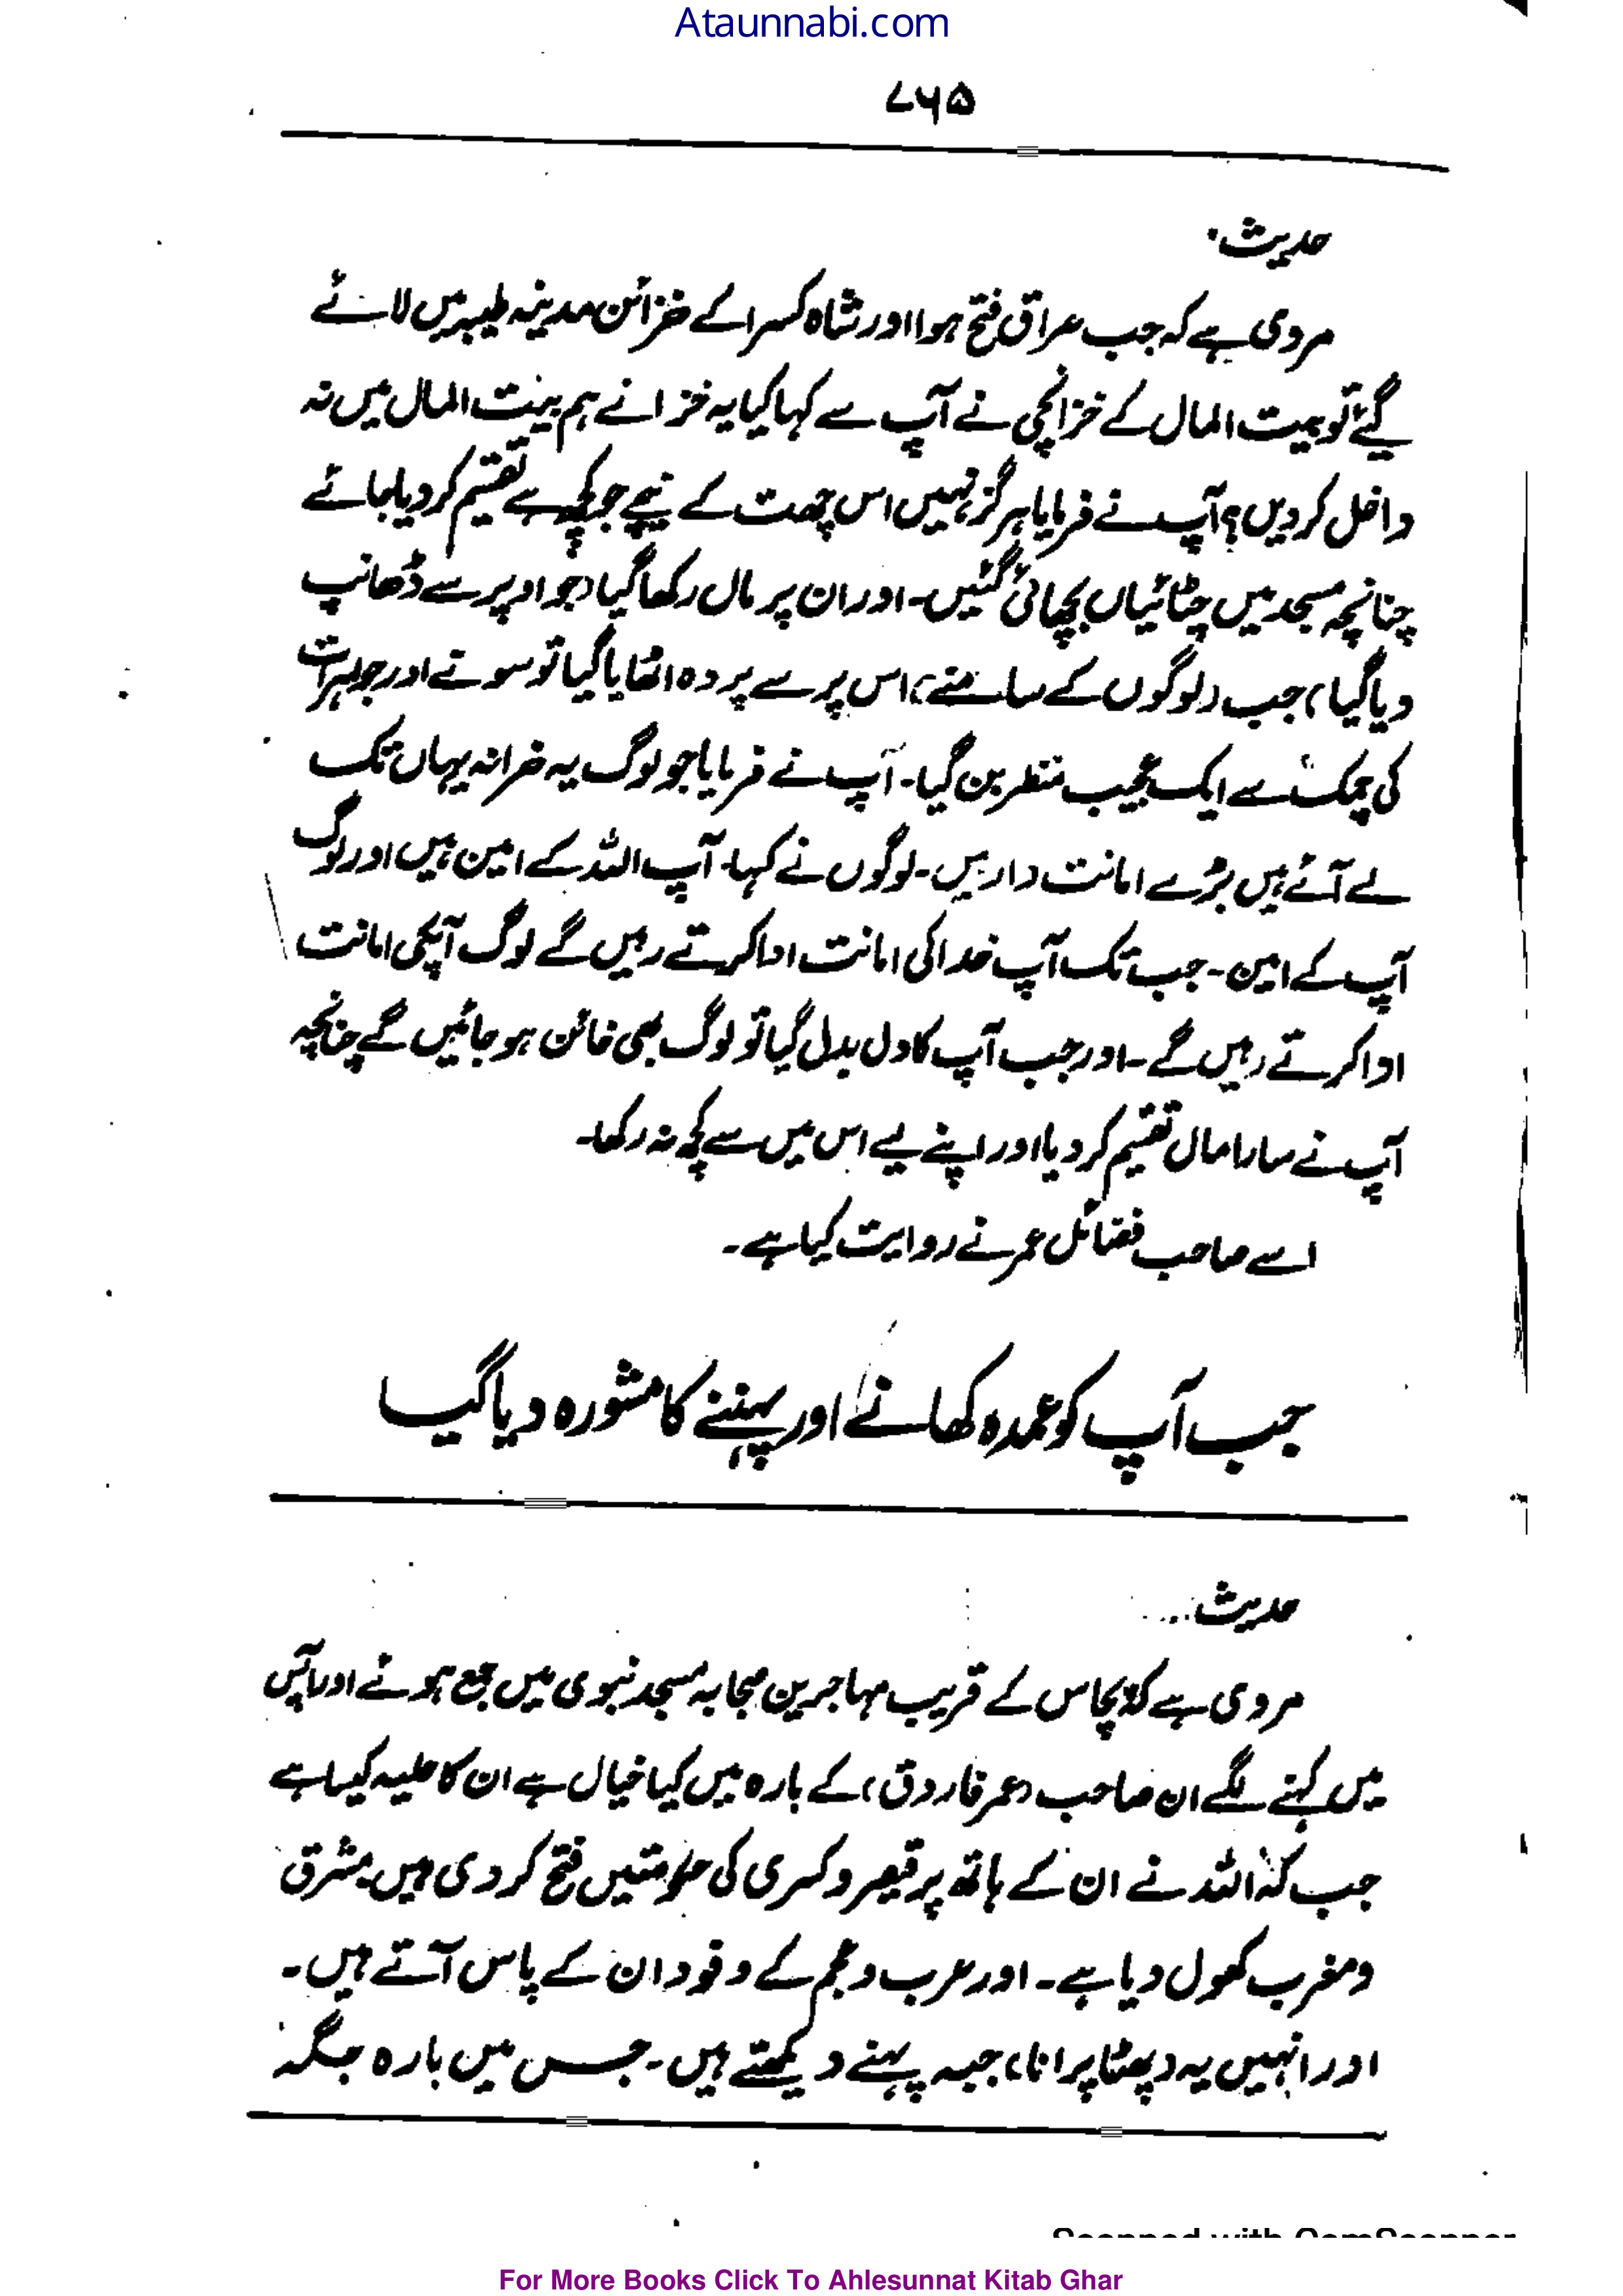 Ataunnabi.com
۷۶۵
حدیث۔
مروی ہے کہ جب عراق فتح ہوا اور شاہ کسرا کے خزائن مدینہ طیبہ میں لائے
گئے تو بیت المال کے خزانچی نے آپ سے کہا کیا یہ خزانے ہم بیت المال میں نہ
داخل کر دیں؟ آپ نے فرمایا ہرگز نہیں اس چھت کے نیچے جو کچھ ہے تقسیم کر دیا جائے
چنانچہ مسجد میں چٹائیاں بچھائی گئیں۔ اور ان پر مال رکھا گیا (جو اوپر سے ڈھانپ
دیا گیا) جب (لوگوں کے سامنے) اس پر سے پردہ اٹھایا گیا تو سونے اور جواہرات
کی چمک سے ایک عجیب منظر بن گیا۔ آپ نے فرمایا جو لوگ یہ خزانہ یہاں تک
لے آئے ہیں بڑے امانت دار ہیں۔ لوگوں نے کہا۔ آپ اللہ کے امین ہیں اور لوگ
آپ کے امین۔ جب تک آپ خدا کی امانت ادا کرتے رہیں گے لوگ آپکی امانت
ادا کرتے رہیں گے۔ اور جب آپ کا دل بدل گیا تو لوگ بھی خائن ہو جائیں گے چنانچہ
آپ نے سارا مال تقسیم کر دیا اور اپنے لیے اس میں سے کچھ نہ رکھا۔
اسے صاحب فضائل عمر نے روایت کیا ہے۔
جب آپ کو عمدہ کھانے اور پہننے کا مشورہ دیا گیا
حدیث۔
مروی ہے کہ پچاس کے قریب مہاجرین صحابہ مسجد نبوی میں جمع ہوئے اور آپس
میں کہنے لگے ان صاحب (عمر فاروق) کے بارہ میں کیا خیال ہے ان کا حلیہ کیسا ہے
جب کہ اللہ نے ان کے ہاتھ پر قیصر و کسری کی حکومتیں فتح کر دی ہیں۔ مشرق
و مغرب کھول دیا ہے۔ اور عرب و عجم کے وفود ان کے پاس آتے ہیں۔
اور انہیں یہ (پھٹا پرانا) جبہ پہنے دیکھتے ہیں۔ جس میں بارہ جگہ
Scanned with CamScanner
For More Books Click To Ahlesunnat Kitab Ghar